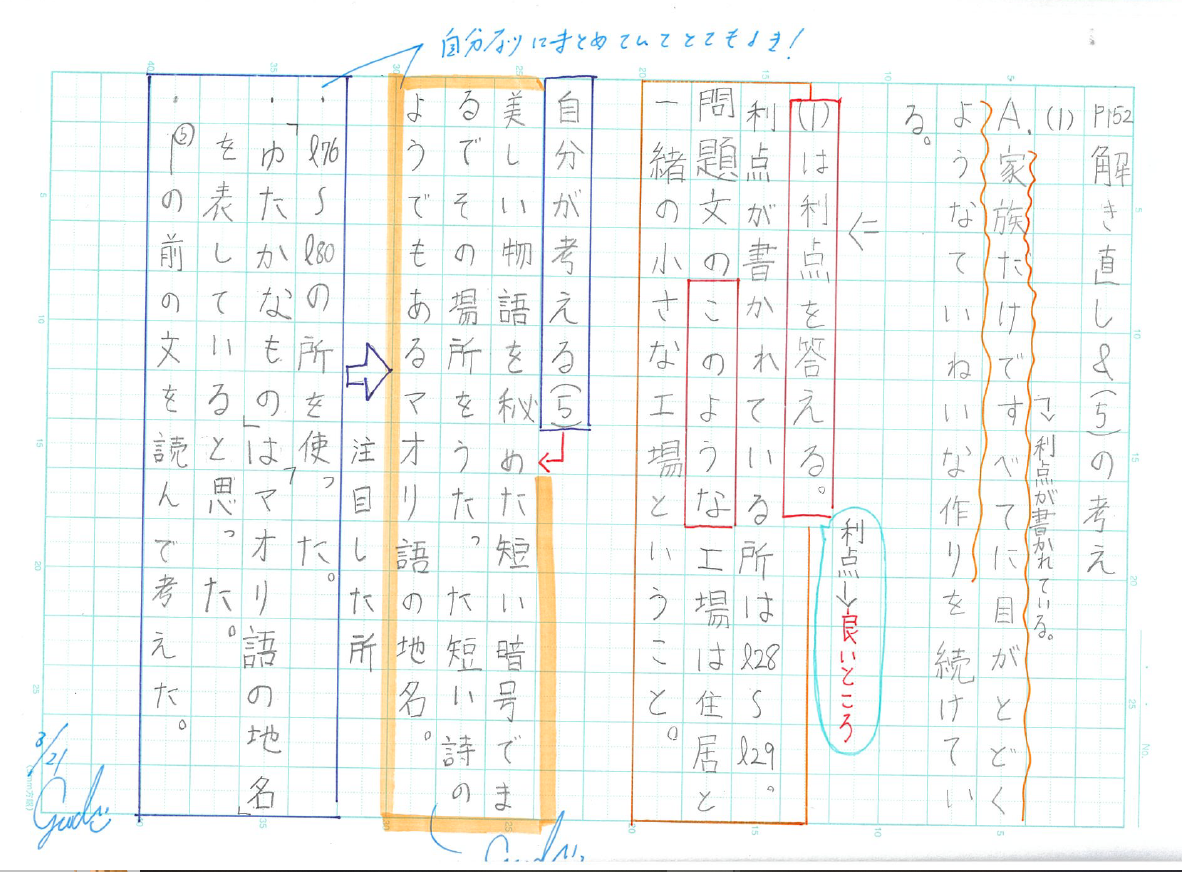 自分なりにまとめていてとてもよき！
P152 解き直し&(5)の考え
(1)
A.家族だけですべてに目がとどく
ようなていねいな作りを続けてい
る。
利点が書かれている。
(1)は利点を答える。
利点→良いところ
利点が書かれている所はl28～l29。
問題文のこのような工場は住居と
一緒の小さな工場ということ。
自分が考える(5)
美しい物語を秘めた短い暗号でま
るでその場所をうたった短い詩の
ようでもあるマオリ語の地名。
注目した所
・l76～l80の所を使った。
・「ゆたかなもの」は「マオリ語の地名」
を表していると思った。
・(5)の前の文を読んで考えた。
3/21
No.